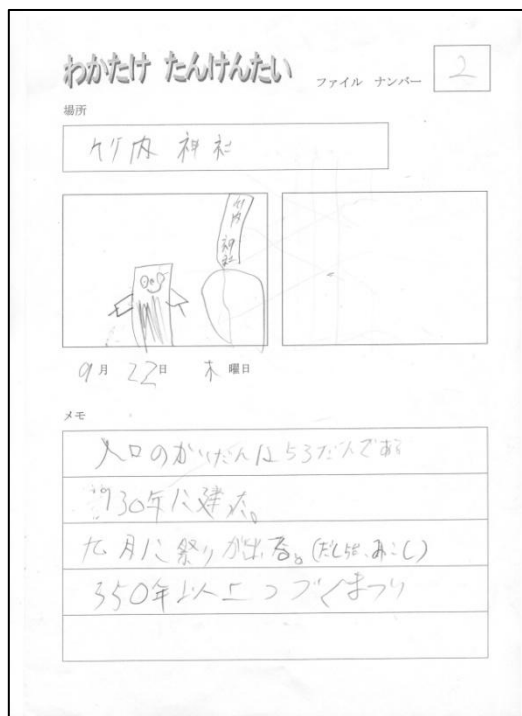 わかたけ たんけんたい
ファイル ナンバー 2
場所
竹内 神社
竹内 神社
9月 22日 木曜日
メモ
入口のかいだんは53だんである
930年に建
九月に祭りが出
350年以上つづくまつり